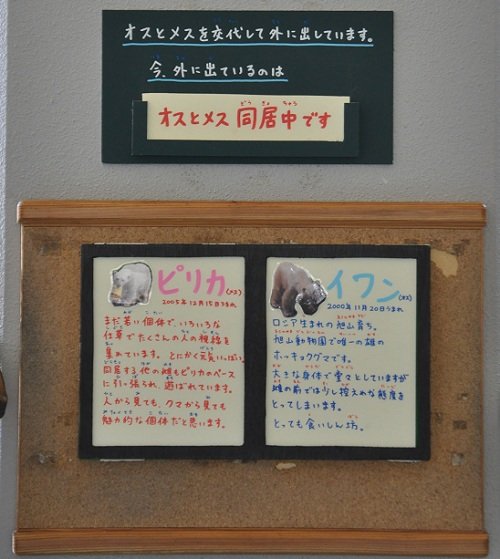 オスとメスを交代して外に出しています。
今、外に出ているのは
どう きょ ちゅう
オスとメス同居中です
ピリカ(メス)
2005年12月15日うまれ
まだ若い個体で、いろいろな
仕草でたくさんの人の視線を
集めています。とにかく元気いっぱい。
同居する他の雌もピリカのペース
に引っ張られ、遊ばれています。
人から見ても、クマから見ても
魅力的な個体だと思います。
イワン(オス)
2000年11月20日うまれ
ロシア生まれの旭山育ち。
旭山動物園で唯一の雄の
ホッキョクグマです。
大きな身体で堂々としていますが
雌の前では少し控えめな態度を
とってしまいます。
とっても食いしん坊。